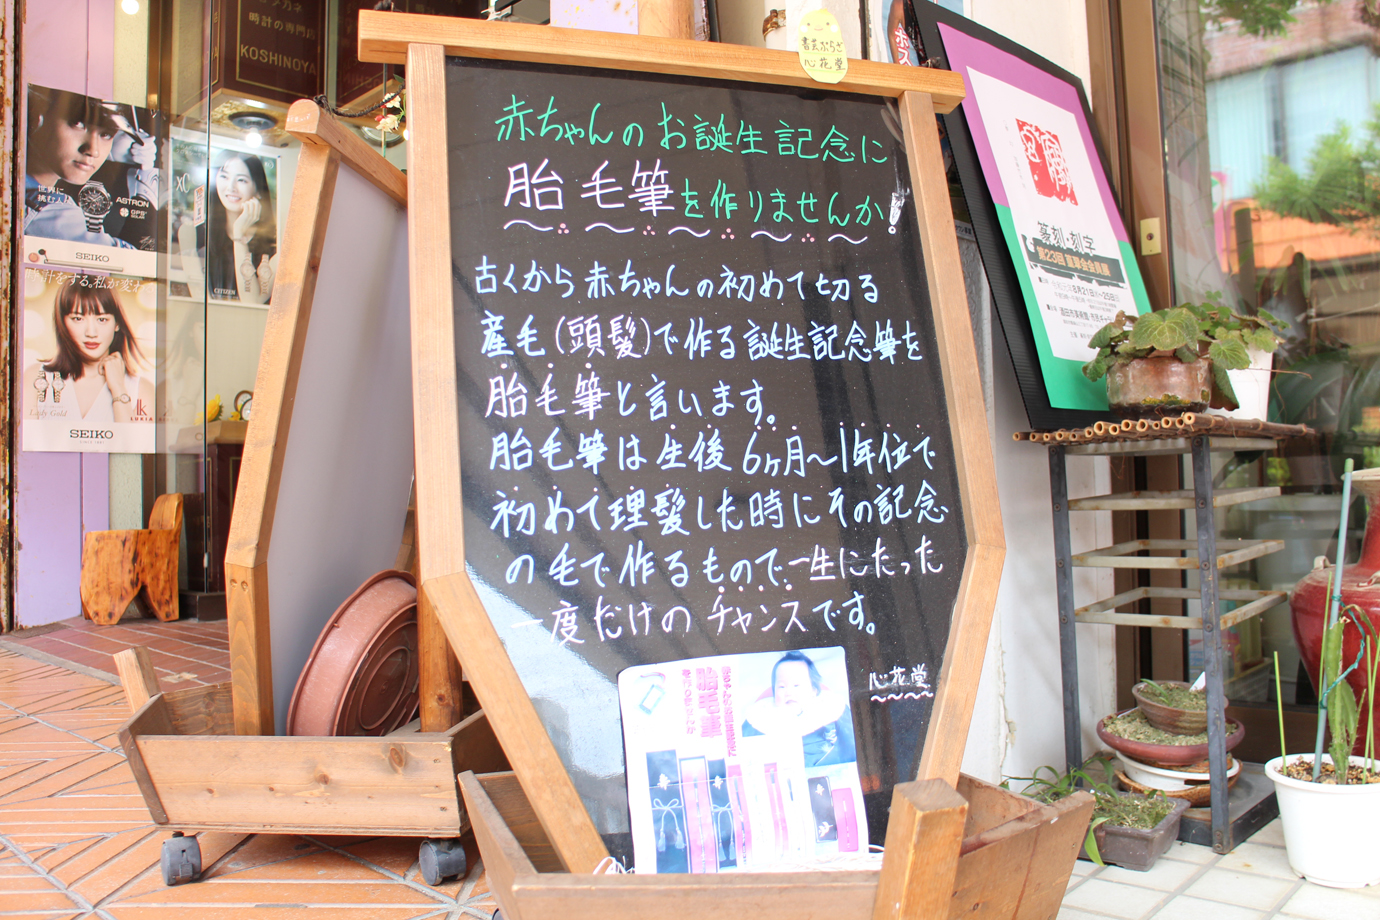 メガネ
時計の専門店
KOSHINOYA
世界に
挑む人へ
ASTRON
GPS
SOLAR
SEIKO
xC
CITIZEN
時計をする。私が変わる
Lady Gold
LUKIA
SEIKO
書芸ぷらざ
心花堂
赤ちゃんのお誕生記念に
胎毛筆を作りませんか!
古くから赤ちゃんの初めて切る
産毛(頭髪)で作る誕生記念筆を
胎毛筆と言います。
胎毛筆は生後6ヶ月〜1年位で
初めて理髪した時にその記念
の毛で作るもので、一生にたった
一度だけのチャンスです。
心花堂
胎毛筆
篆刻・刻字